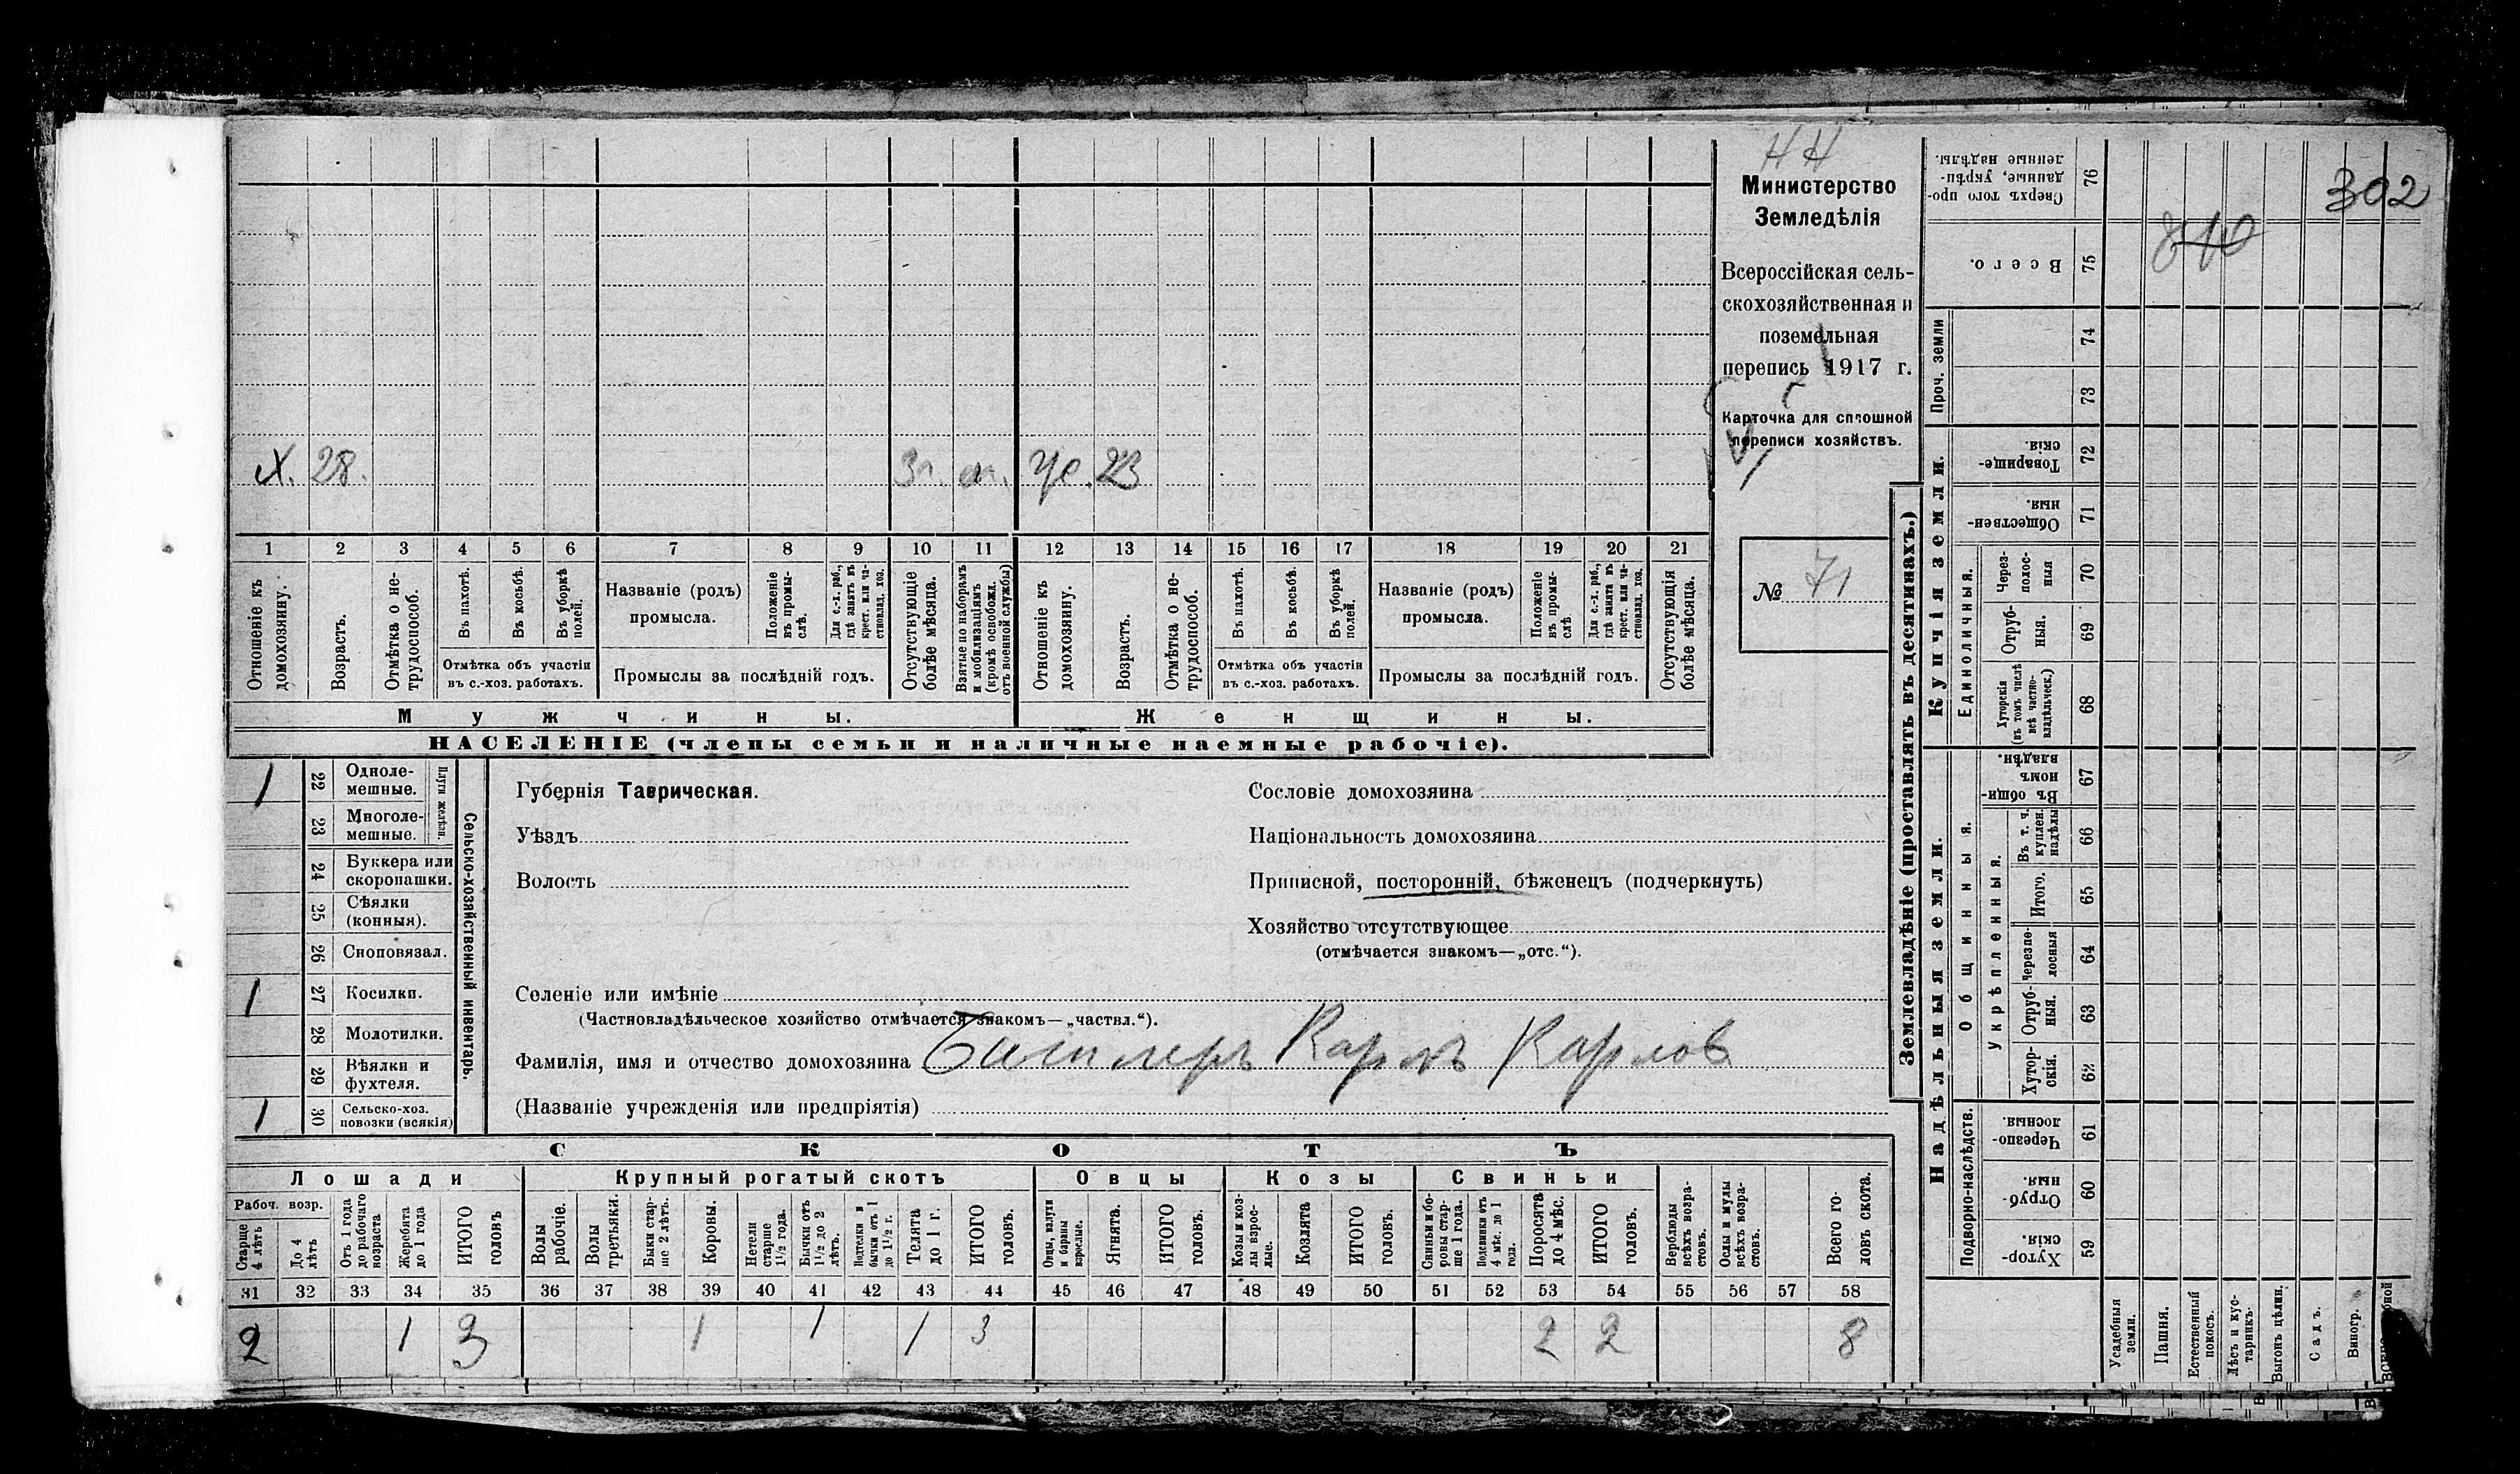 НН
302
840
Министерство
Земледѣлія
Всероссійская сель-
скохозяйственная и
поземельная
перепись 1917 г.
Карточка для сплошной
переписи хозяйствъ.
№ 71
Х. 28. 3 г. м. Же. 23
1 2 3 4 5 6 7 8 9 10 11 12 13 14 15 16 17 18 19 20 21
Отношеніе къ домохозяину.
Возрастъ.
Отмѣтка о не-трудоспособ.
Въ пахотѣ.
Въ косьбѣ.
Въ уборкѣ полей.
Отмѣтка объ участіи
въ с.-хоз. работахъ.
Названіе (родъ)
промысла.
Положеніе въ промы-слѣ.
Для с.-х. раб., гдѣ занятъ въ крест. или ча-стновлад. хоз.
Промыслы за послѣдній годъ.
Отсутствующіе болѣе мѣсяца.
Взятые по наборамъ и мобилизаціямъ (кромѣ освобожд. отъ военной службы)
Отношеніе къ домохозяину.
Возрастъ.
Отмѣтка о не-трудоспособ.
Въ пахотѣ.
Въ косьбѣ.
Въ уборкѣ полей.
Отмѣтка объ участіи
въ с.-хоз. работахъ.
Названіе (родъ)
промысла.
Положеніе въ промы-слѣ
Для с.-х. раб., гдѣ занята въ крест. или ча-стновлад. хоз.
Промыслы за послѣдній годъ.
Отсутствующія болѣе мѣсяца.
Мужчины.
Женщины.
НАСЕЛЕНІЕ (члены семьи и наличные наемные рабочіе).
1 22 Одноле-мешные.
23 Многоле-мешные.
Плуги желѣзн.
24 Буккера или скоропашки.
25 Сѣялки (конныя).
26 Сноповязал.
1 27 Косилки.
28 Молотилки.
29 Вѣялки и фухтеля.
1 30 Сельско-хоз. повозки (всякія)
Сельско-хозяйственный инвентарь.
Губернія Таврическая.
Уѣздъ
Волость
Сословіе домохозяина
Національность домохозяина
Приписной, посторонній, бѣженецъ (подчеркнуть)
Хозяйство отсутствующее
(отмѣчается знакомъ—„отс.“).
Селеніе или имѣніе
(Частновладѣльческое хозяйство отмѣчается знакомъ—„частвл.“).
Фамилія, имя и отчество домохозяина Карлъ Карлов
(Названіе учрежденія или предпріятія)
СКОТЪ
Лошади Крупный рогатый скотъ Овцы Козы Свиньи
Рабоч. возр.
Старше 4 лѣтъ
До 4 лѣтъ
Отъ 1 года до рабочаго возраста
Жеребята до 1 года
ИТОГО головъ
Волы рабочіе.
Волы третьяки.
Быки стар-ше 2 лѣтъ.
Коровы.
Нетели старше 1½ года.
Бычки отъ 1½ до 2 лѣтъ.
Подтелки и бычки отъ 1 до 1½ г.
Телята до 1 г.
ИТОГО головъ.
Овцы, валухи и бараны взрослые.
Ягнята.
ИТОГО головъ.
Козы и коз-лы взрос-лые.
Козлята
ИТОГО головъ.
Свиньи и бо-ровы стар-ше 1 года.
Подсвинки отъ 4 мѣс. до 1 года.
Поросята до 4 мѣс.
ИТОГО головъ.
Верблюды всѣхъ возра-стовъ.
Ослы и мулы всѣхъ возра-стовъ.
Всего го-ловъ скота.
31 32 33 34 35 36 37 38 39 40 41 42 43 44 45 46 47 48 49 50 51 52 53 54 55 56 57 58
2 1 3 1 1 1 3 2 2 8
Землевладѣніе (проставлять въ десятинахъ.)
Сверхъ того про-данные, укрѣп-ленные надѣлы. 76
Всего. 75
Проч. земли 74
73
Купчія земли.
Товарище-скія. 72
Обществен-ныя 71
Единоличныя.
Через-полос-ныя 70
Отруб-ныя. 69
Хуторскія (въ томъ числѣ всѣ частно-владѣльческ.) 68
Надѣльныя земли.
Общинныя.
Въ общи-номъ владѣн. 67
Укрѣпленныя.
Въ т. ч. куплен. надѣлы 66
Итого. 65
Черезпо-лосныя 64
Отруб-ныя. 63
Хутор-скія. 62
Подворно-наслѣдств.
Черезпо-лосныя 61
Отруб-ныя. 60
Хутор-скія. 59
Усадебныя земли.
Пашня.
Естественный покосъ.
Лѣсъ и кус-тарникъ.
Выгонъ цѣлин.
Садъ.
Виногр.